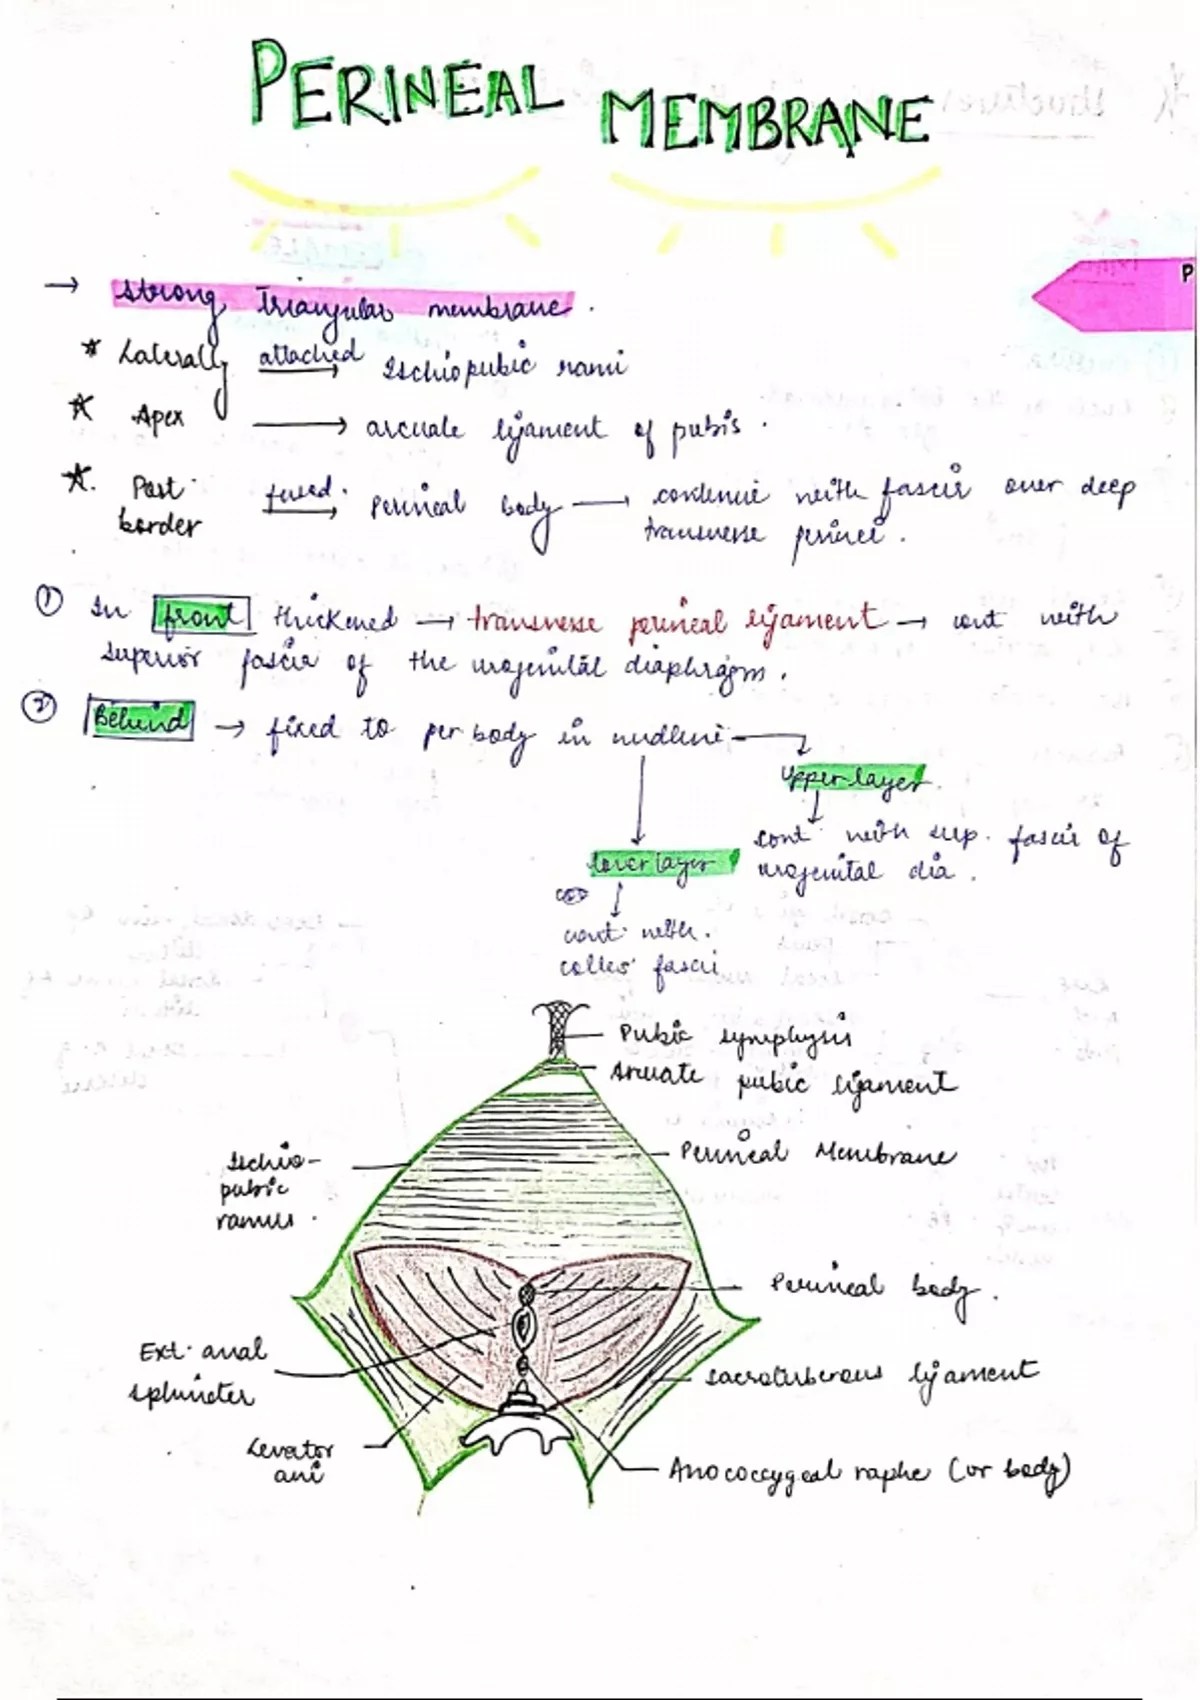 PERINEAL MEMBRANE
→ strong triangular membrane.
* Laterally attached → Ischiopubic rami
* Apex → arcuate ligament of pubis.
*. Post. border fused. → Perineal body → continue with fascia over deep
transverse perinei.
① In front thickened → transverse perineal ligament → cont with
superior fascia of the urogenital diaphragm.
② Behind → fixed to per body in midline →
upper layer.
↓
cont with sup. fascia of
urogenital dia.
lower layer
↓
cont. with.
colles' fasci
Pubic symphysis
Arcuate pubic ligament
Perineal Membrane
Ischio-
pubic
ramus.
Perineal body.
Ext. anal
sphincter
sacrotuberous ligament
Levator
ani
Anococcygeal raphe (or body)
P